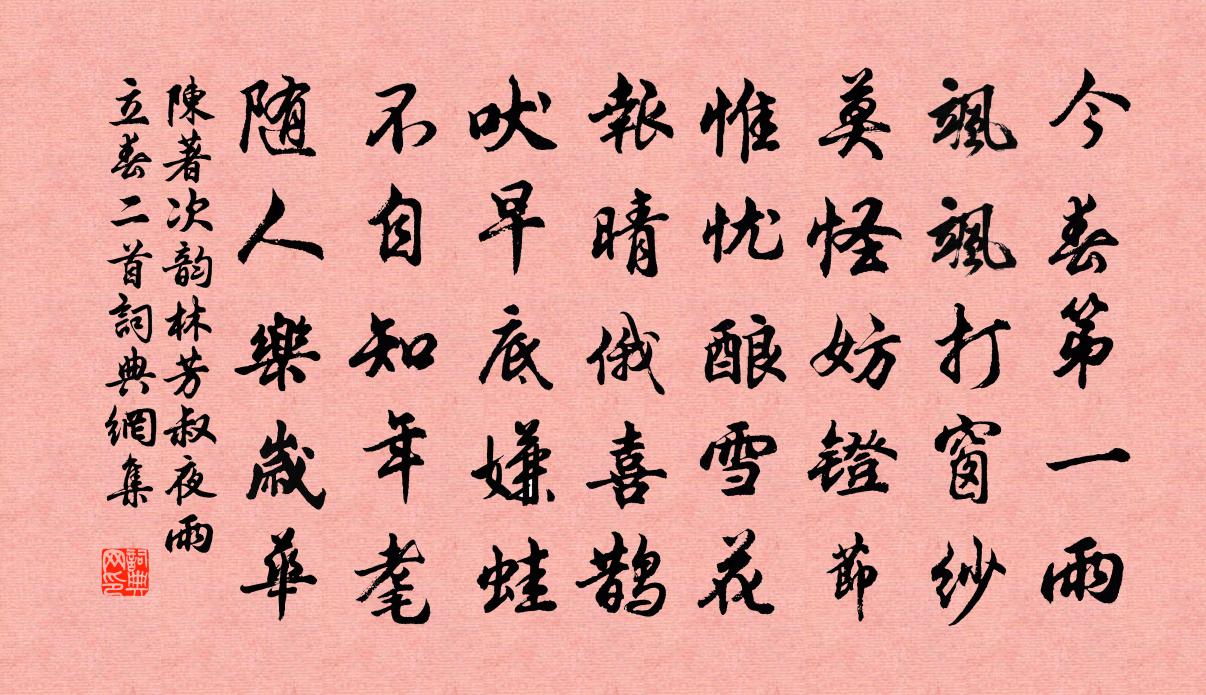 今春第一雨
颯颯打窗紗
莫怪妨镫節
惟忧酿雪花
報晴俄喜鹊
吠早底嫌蛙
不自知年耄
随人樂歳華
陳著次韵林芳叔夜雨
立春二首詞典網集
詞典网印